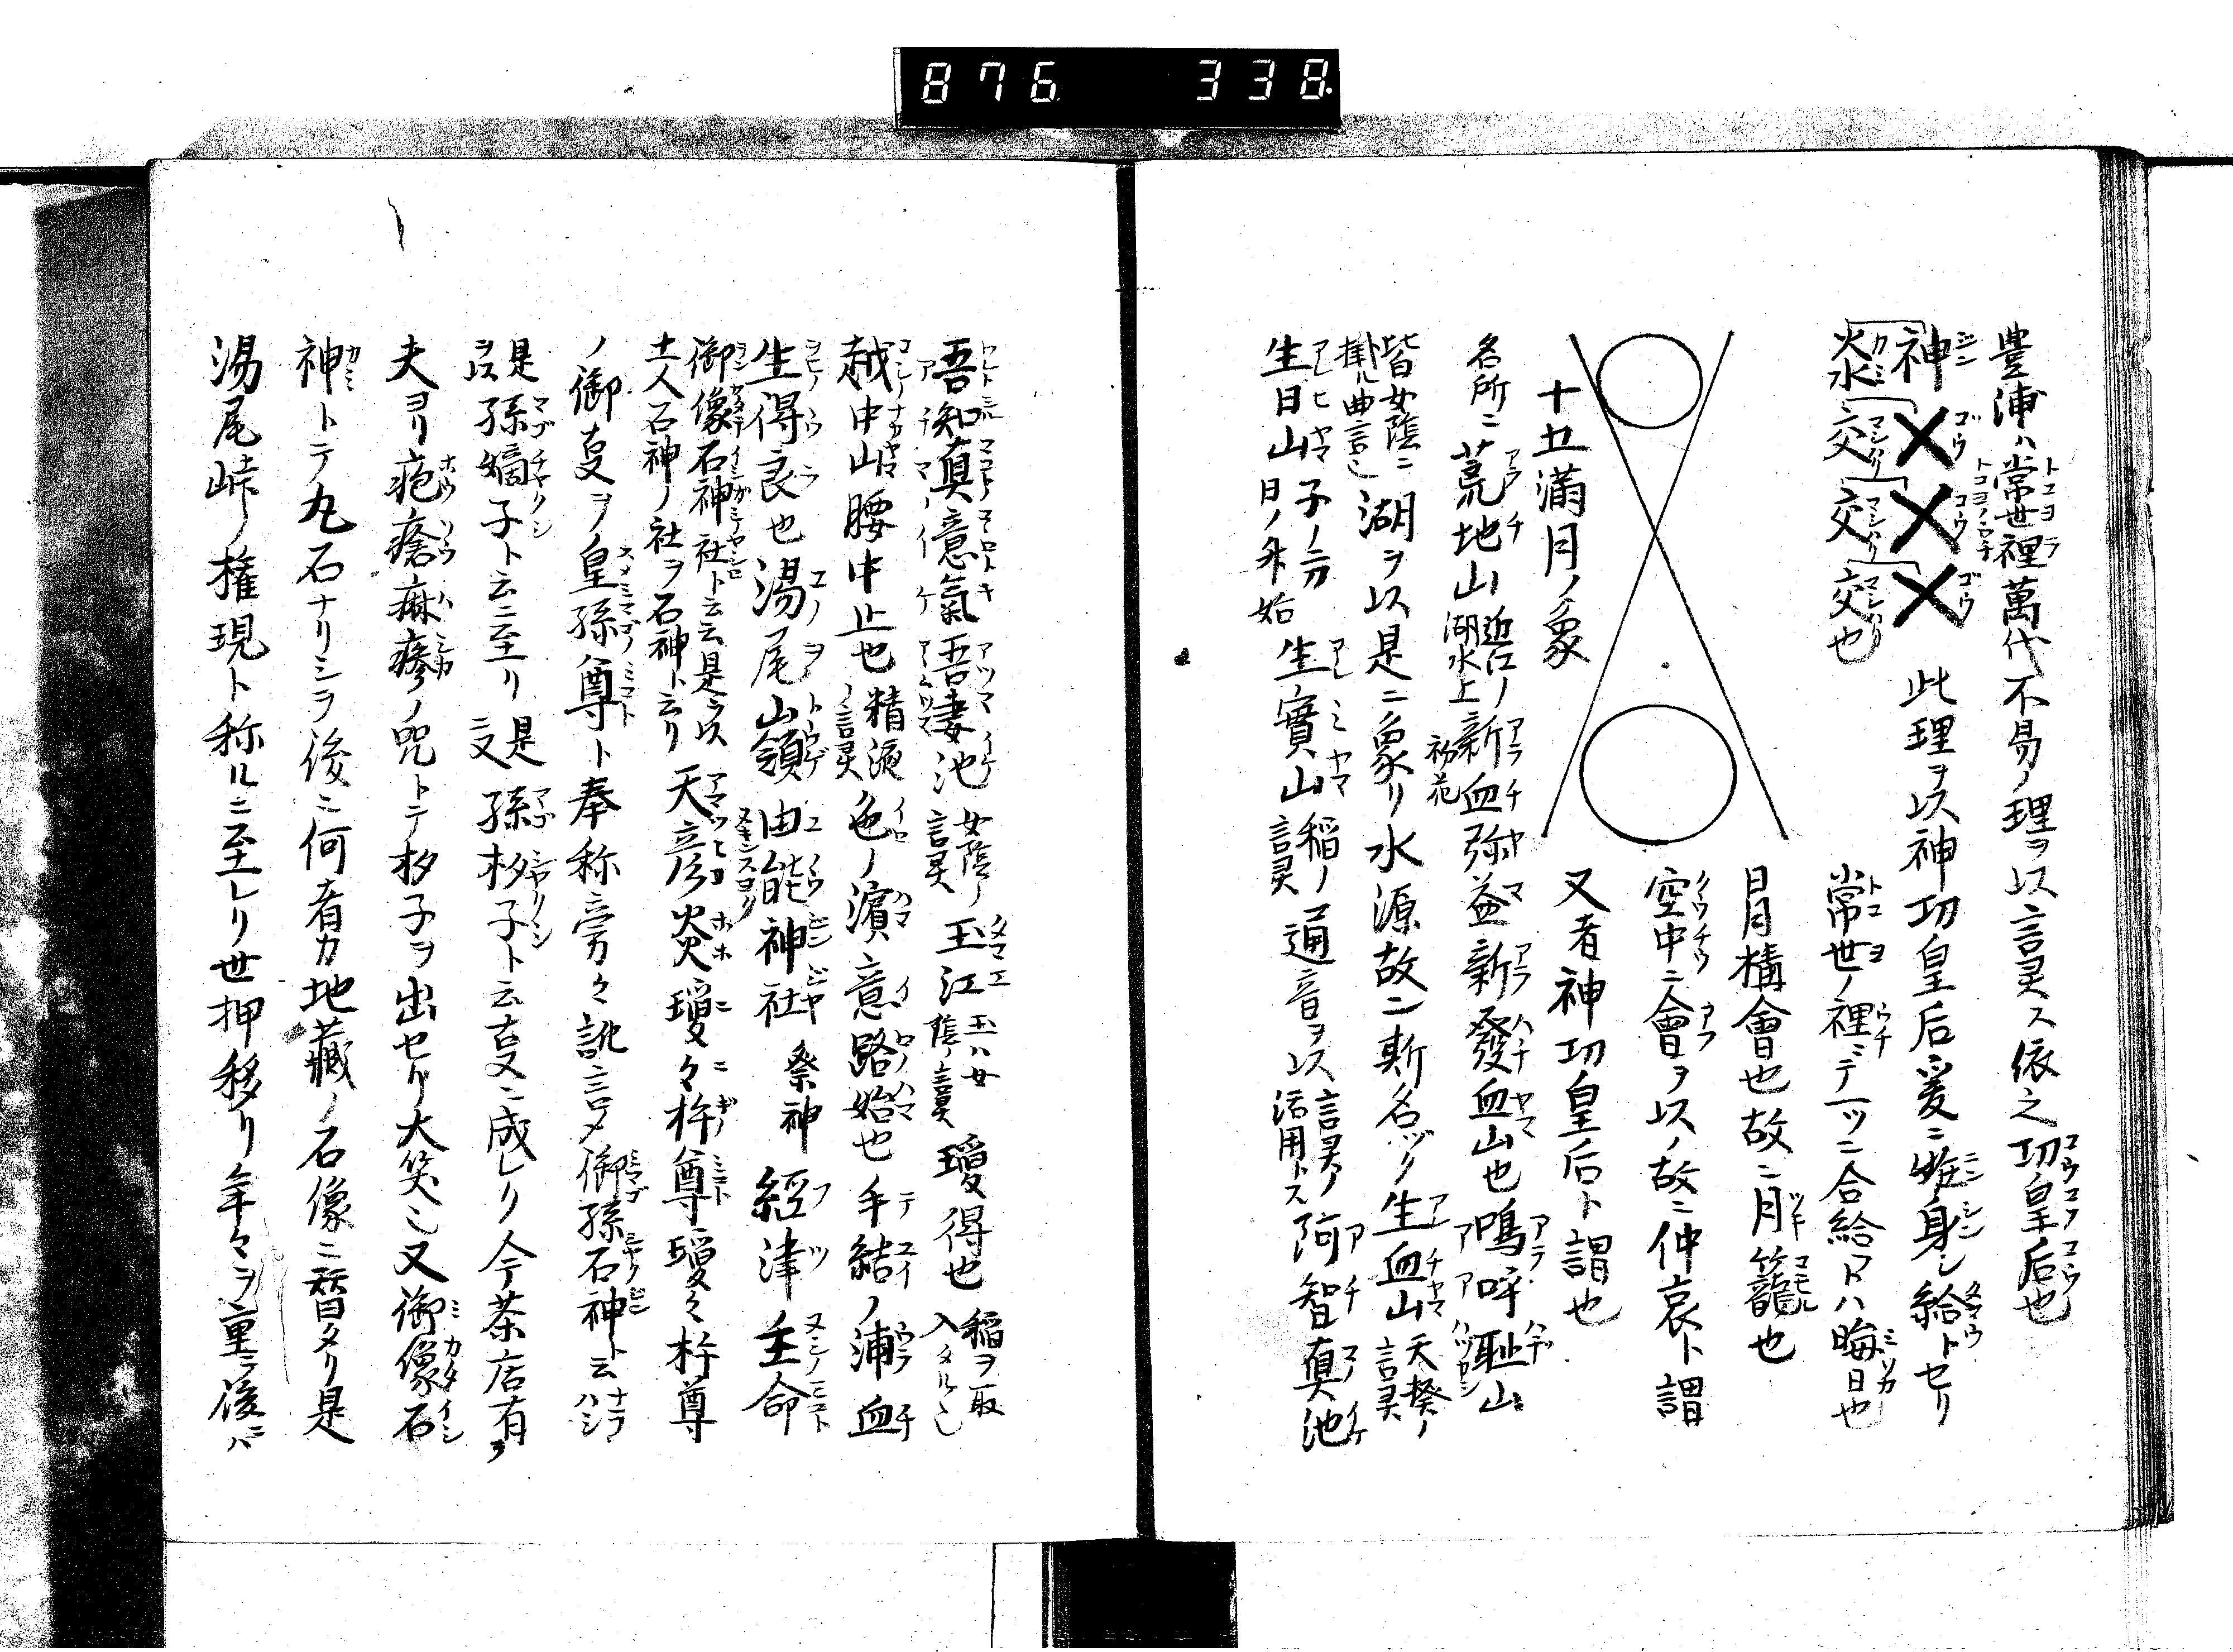 876 338
豊浦ハ常世裡萬代不易ノ理ヲ以言灵ス依之功皇后也
神××× 此理ヲ以神功皇后爰ニ妊身シ給トセリ
火水交交交也 常世ノ裡ニテ一ツニ合給フトハ晦日也
日月構會也故ニ月籠也
空中ニ會ヲ以ノ故ニ仲哀ト謂
十五満月ノ象 又者神功皇后ト謂也
名所ニ荒地山近江ノ湖水上新血弥益新發血山也嗚呼耻山
初花
皆女陰ニ掛ル曲言也湖ヲ以是ニ象リ水源故ニ斯名ヅク生血山天癸ノ言灵
生日山子ノ刀日ノ外始生實山稲ノ言灵通音ヲ以言灵ノ活用トス阿智真池
吾知真意氣吾妻池女陰ノ言灵玉江玉ハ女陰ノ言灵瓊得也稲ヲ取入タル也
越中山腰中止也精液ノ言灵色ノ濵意路始也手結ノ浦血
生得良也湯尾山嶺由能神社祭神經津主命
御像石神社ト云云是ヲ以土人石神ノ社ヲ石神ト云リ天彦火瓊々杵尊瓊々杵尊
ノ御叓ヲ皇孫尊ト奉称旁々訛言メ御孫石神ト云
是ヲ以孫嫡子ト云ニ至リ是ニ又孫杉子ト云叓ニ成レリ今茶店有ヲ
夫ヨリ疱瘡痳疹ノ咒トテ杉子ヲ出セリ大笑也又御像石
神トテ丸石ナリシヲ後ニ何者カ地藏ノ石像ニ替タリ是
湯尾峠ノ權現ト称ルニ至レリ世押移リ年々ヲ重テ後ニハ